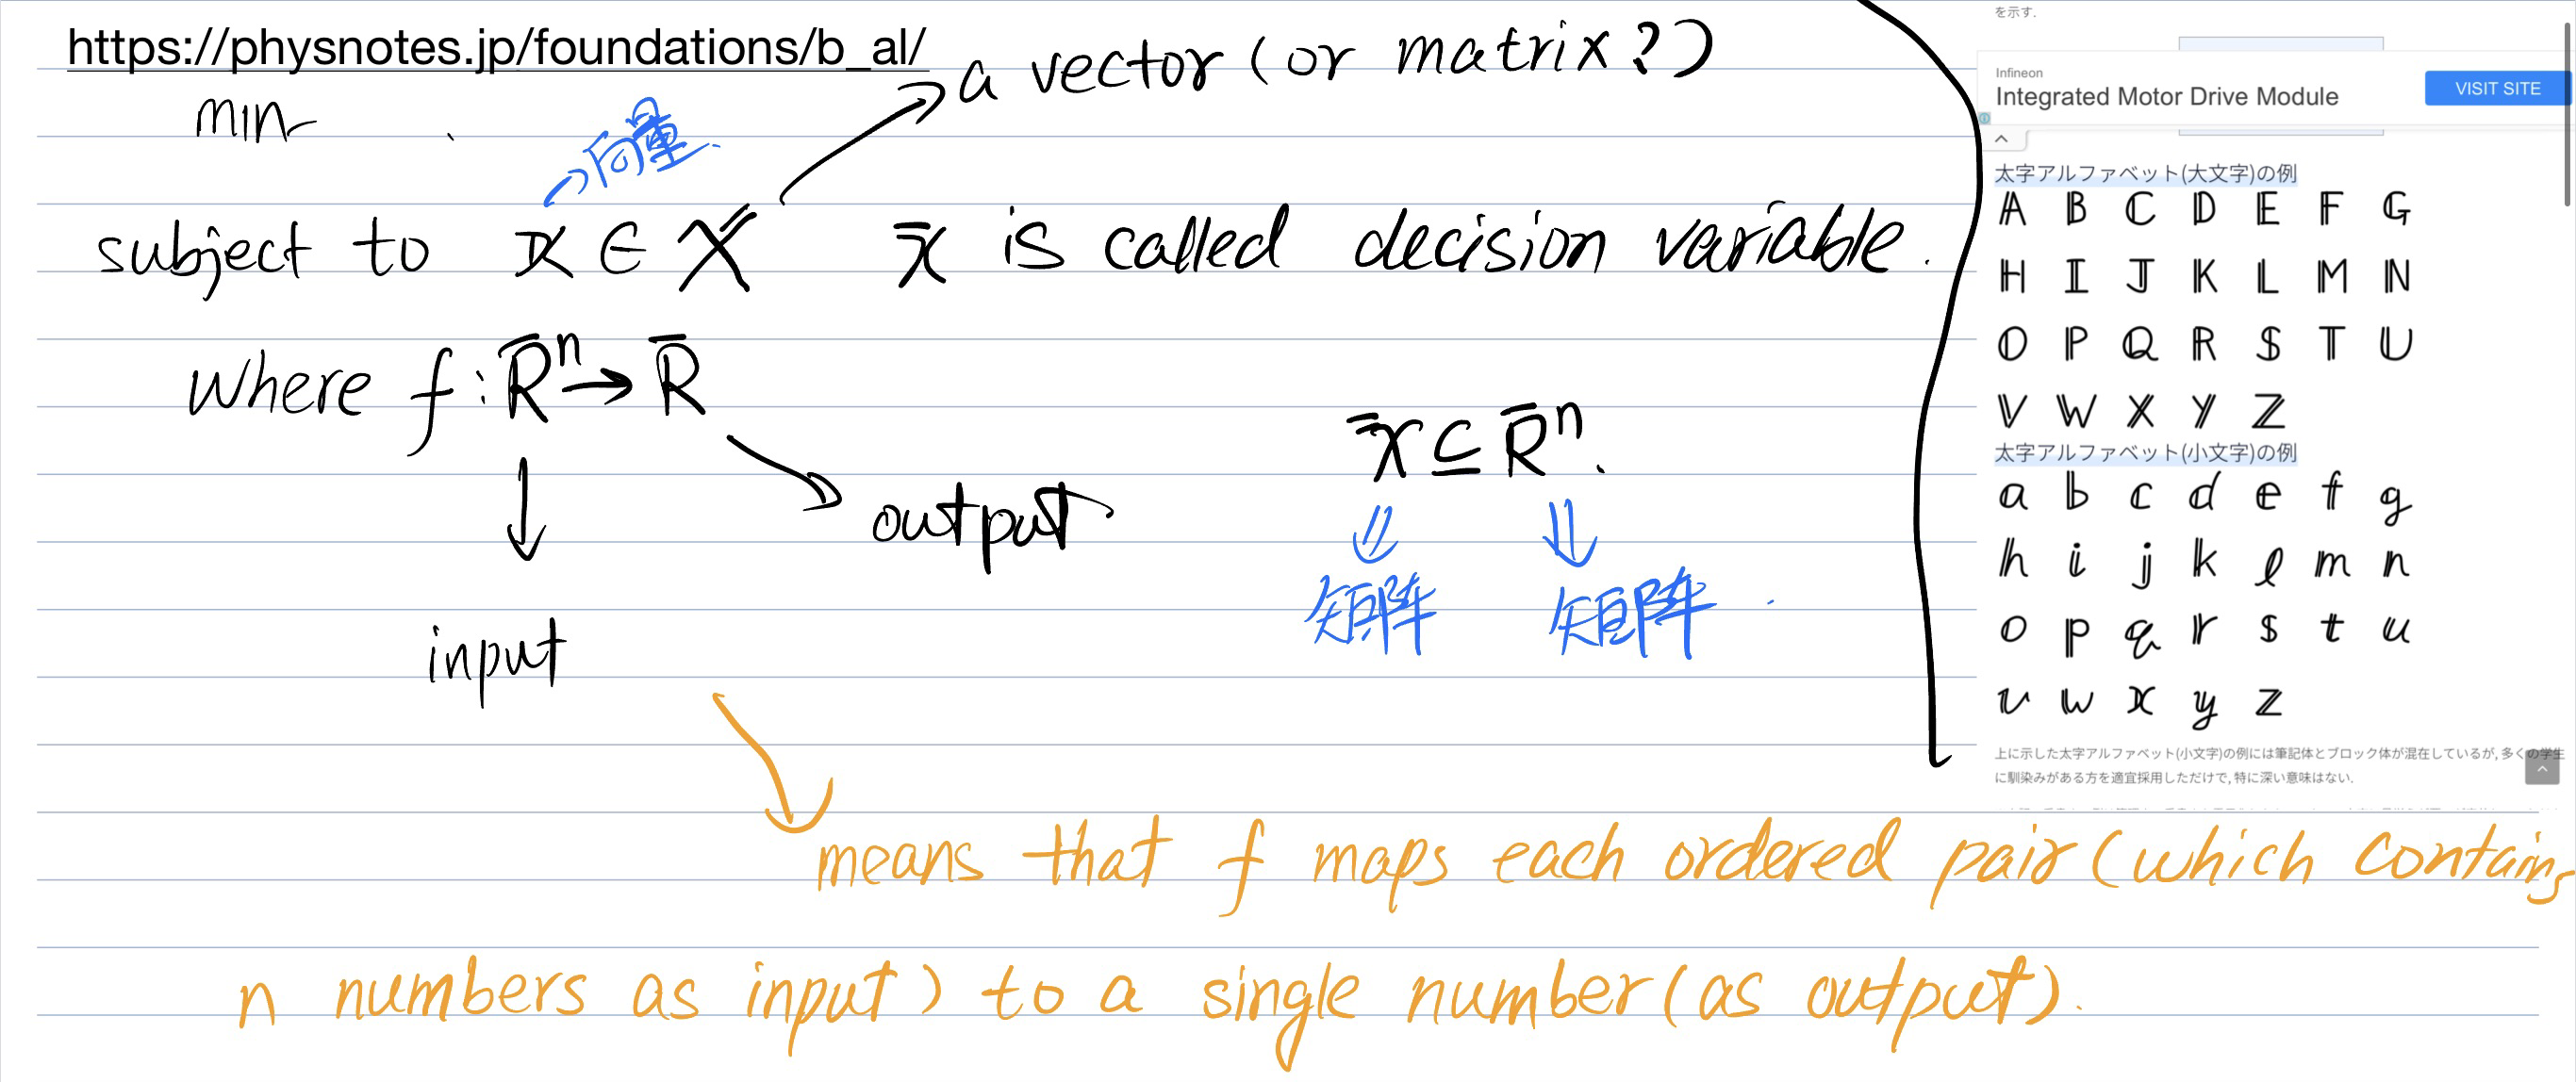 https://physnotes.jp/foundations/b_al/
a vector (or matrix?)
min
向量
subject to x ∈ X x̄ is called decision variable.
where f : R̄ⁿ → R̄
X̿ ⊆ R̄ⁿ.
output
矩阵 矩阵
input
means that f maps each ordered pair (which contains
n numbers as input) to a single number (as output).
を示す.
Infineon
Integrated Motor Drive Module
VISIT SITE
太字アルファベット(大文字)の例
A B C D E F G
H I J K L M N
O P Q R S T U
V W X Y Z
太字アルファベット(小文字)の例
a b c d e f g
h i j k l m n
o p q r s t u
v w x y z
上に示した太字アルファベット(小文字)の例には筆記体とブロック体が混在しているが, 多くの学生
に馴染みがある方を適宜採用しただけで, 特に深い意味はない.